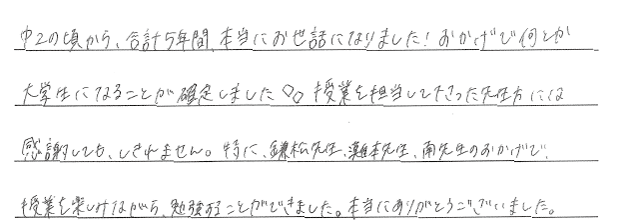 中2の頃から、合計5年間、本当にお世話になりました！おかげで何とか
大学生になることが確定しました◇◇ 授業を担当して下さった先生方には
感謝しても、しきれません。特に、鎌松先生、灘本先生、南先生のおかげで、
授業を楽しみながら、勉強することができました。本当にありがとうございました。